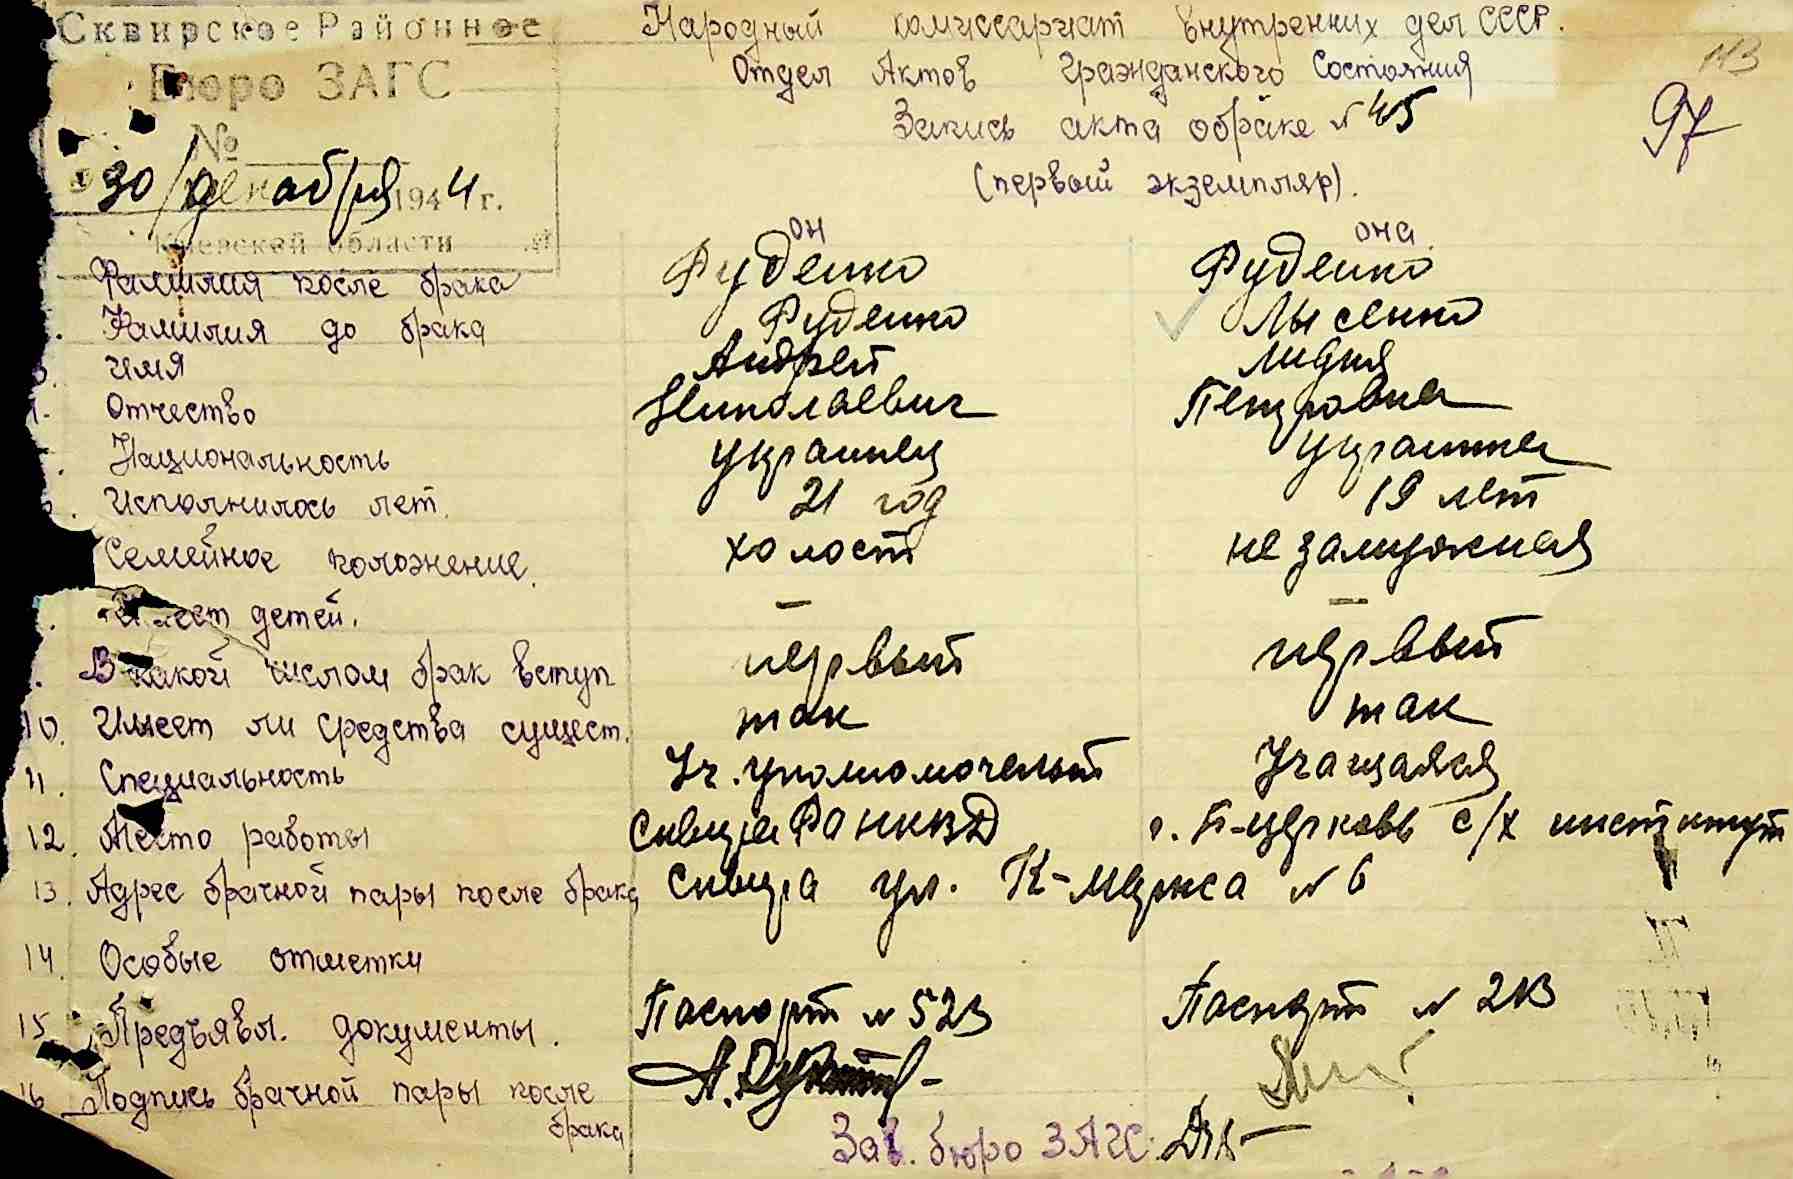 Сквирское Районное
Бюро ЗАГС
№
30/декабря 1944 г.
Киевской области
Народный комиссариат внутренних дел СССР.
Отдел Актов Гражданского Состояния
Запись акта о браке № 45
(первый экземпляр).
113
97
он она.
Фамилия после брака Руденко Руденко
Фамилия до брака Руденко Лысенко
3. Имя Андрей Лидия
4. Отчество Николаевич Петровна
Национальность украинец украинка
Исполнилось лет. 21 год 19 лет
Семейное положение. холост не замужняя
Имеет детей. — —
В какой числом брак вступ первый первый
10. Имеет ли средства сущест. так так
11. Специальность Уч. уполномоченый Учащаяся
12. Место работы Сквира РО НКВД г. Б-церковь с/х институт
13. Адрес брачной пары после брака Сквира ул. К-Маркса № 6
14. Особые отметки
15. Предъявл. документы. Паспорт № 523 Паспорт № 213
16. Подпись брачной пары после
брака
Зав. бюро ЗАГС: